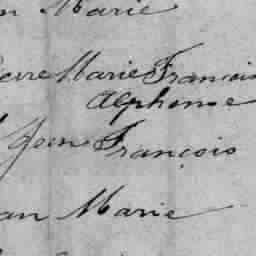 n Marie
ierre Marie Francois
Alphonse
Jean François
an Marie